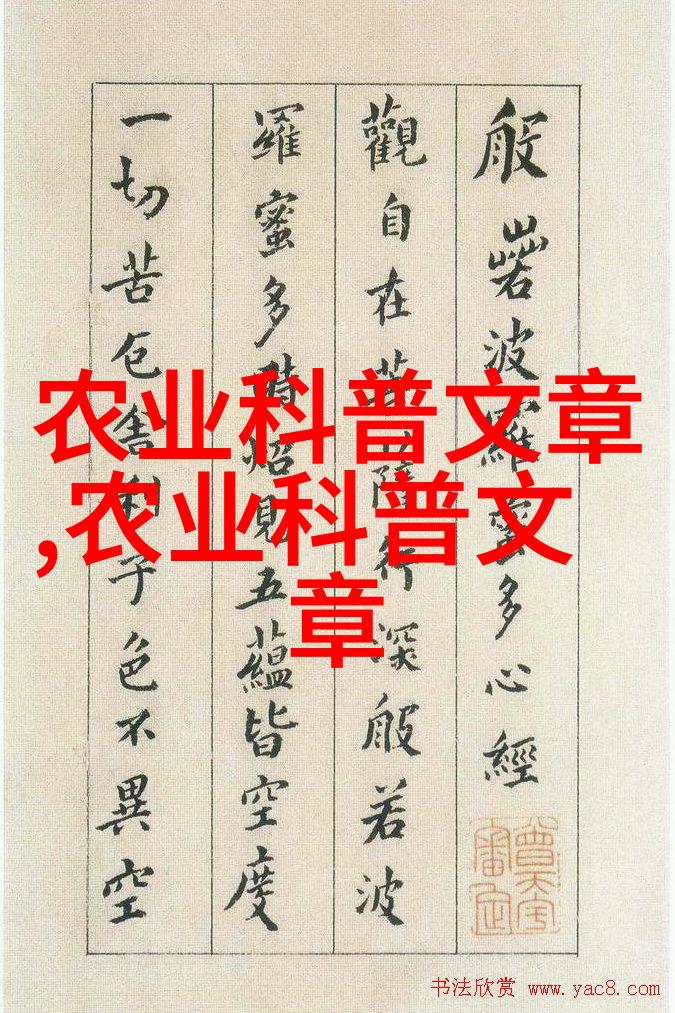 般若波羅蜜多心經
觀自在菩薩行深般若波
羅蜜多時照見五蘊皆空度
一切苦厄舍利子色不異空
农业科普文章
,农业科普文
章
书法欣赏 www.yac8.com